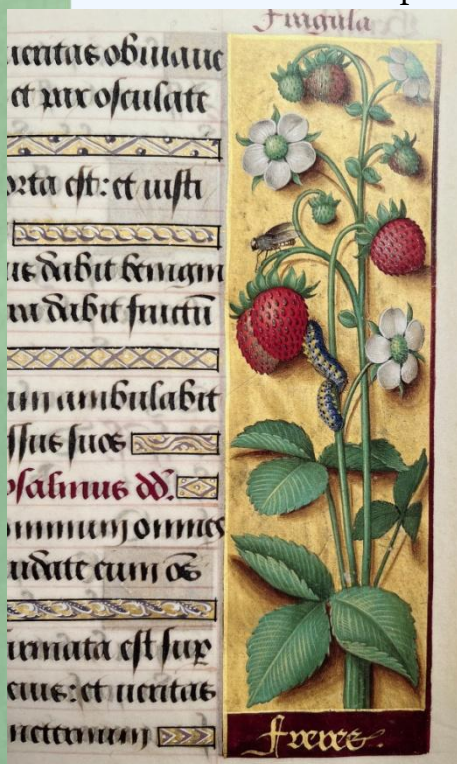 Fragula
ueritas obuiaue
et pax osculate
orta est: et iusti
dabit benigni
dabit fructū
ambulabit
ssus suos
psalmus dd.
ominum omnes
audate eum oēs
irmata est sup
eius: et ueritas
eternum
frezes.